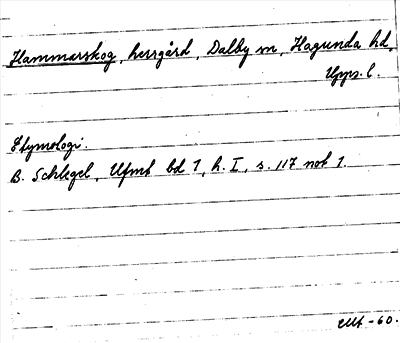 Hammarskog, herrgård, Dalby sn, Hagunda hd,
Upps. l.
Etymologi.
B. Schlegel, Ufmt bd 1, h. I, s. 117 not 1.
-60.